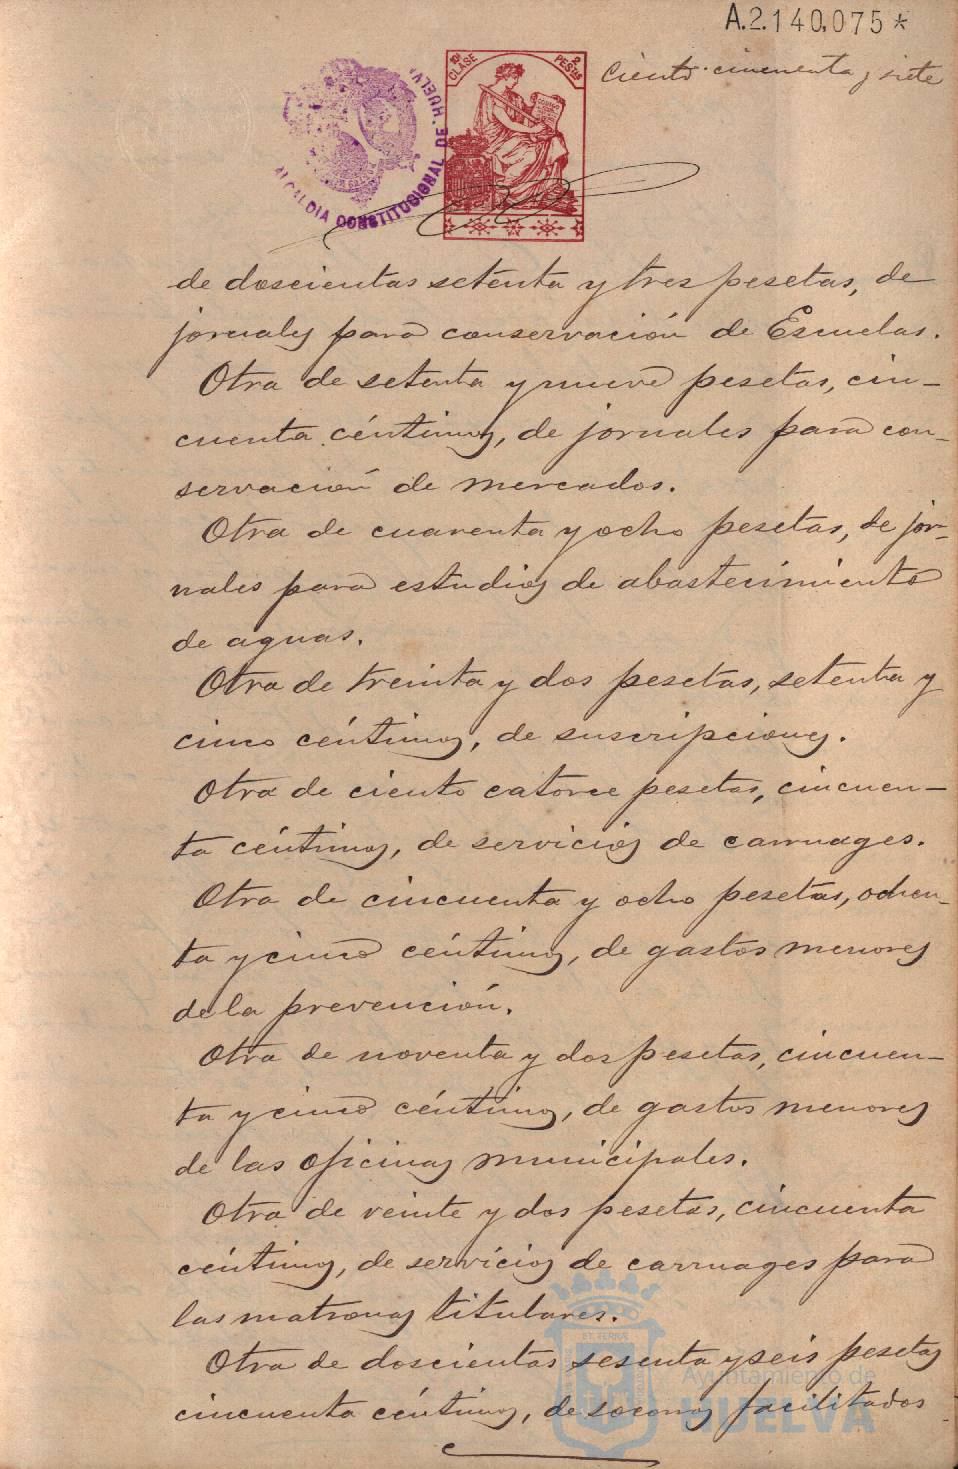 A.2.140,075*
Ciento cincuenta y siete
10ª CLASE
2 PESTAS
ALCALDIA CONSTITUCIONAL DE HUELVA
de doscientas setenta y tres pesetas, de
jornales para conservación de Escuelas.
Otra de setenta y nueve pesetas, cin-
cuenta céntimos, de jornales para con-
servación de mercados.
Otra de cuarenta y ocho pesetas, de jor-
nales para estudios de abastecimiento
de aguas.
Otra de treinta y dos pesetas, setenta y
cinco céntimos, de suscripciones.
Otra de ciento catorce pesetas, cincuen-
ta céntimos, de servicios de carruages.
Otra de cincuenta y ocho pesetas, ochen-
ta y cinco céntimos, de gastos menores
de la prevención.
Otra de noventa y dos pesetas, cincuen-
ta y cinco céntimos, de gastos menores
de las oficinas municipales.
Otra de veinte y dos pesetas, cincuenta
céntimos, de servicios de carruages para
las matronas titulares.
Otra de doscientas sesenta y seis pesetas
cincuenta céntimos, de socorros facilitados
Ayuntamiento de
HUELVA